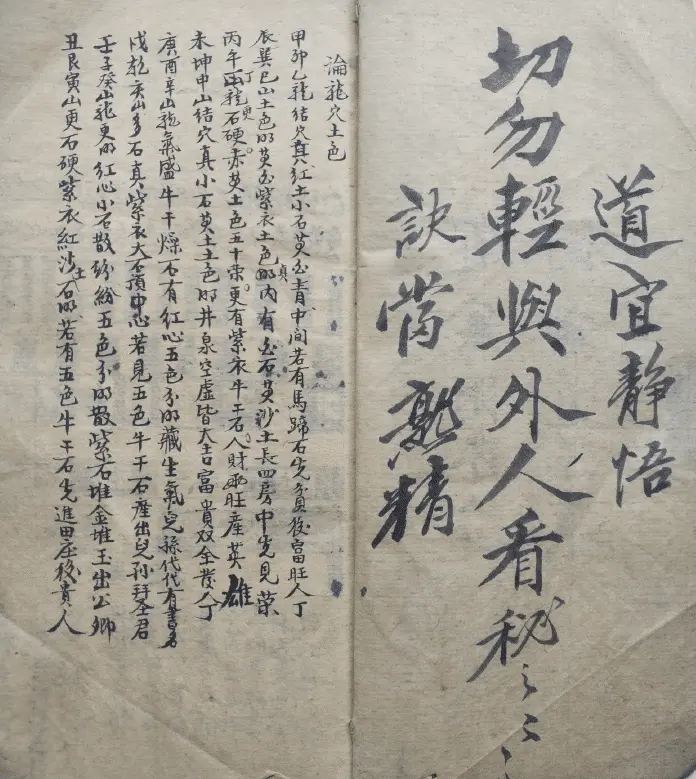 道宜静悟
切勿輕與外人看秘之〻〻
訣當熟精
淪龍穴土色
甲卯乙龍結穴真紅土小石黃白青中间若有馬蹄石先貧後富旺人丁
辰巽巳山土色明黃白紫衣土色明内真有白石黃沙土長四房中先見榮
丙午丁龍更石硬赤黃土色五十束更有紫衣牛干石人財兩旺產英雄
未坤申山結穴真小石黃土土色明井泉空虛皆大吉富貴双全發人丁
庚酉辛山龍氣盛牛干燥石有紅心五色分明藏生氣兒孫代代有書名
戌乾亥山多石真紫衣大石頂中心若見五色牛干石產出兒孙拜圣君
壬子癸山龍更明紅心小石散紛紛五色分明散紫石堆金堆玉出公卿
丑艮寅山更石硬紫衣紅沙土石明若有五色牛干石先進田庄後貴人